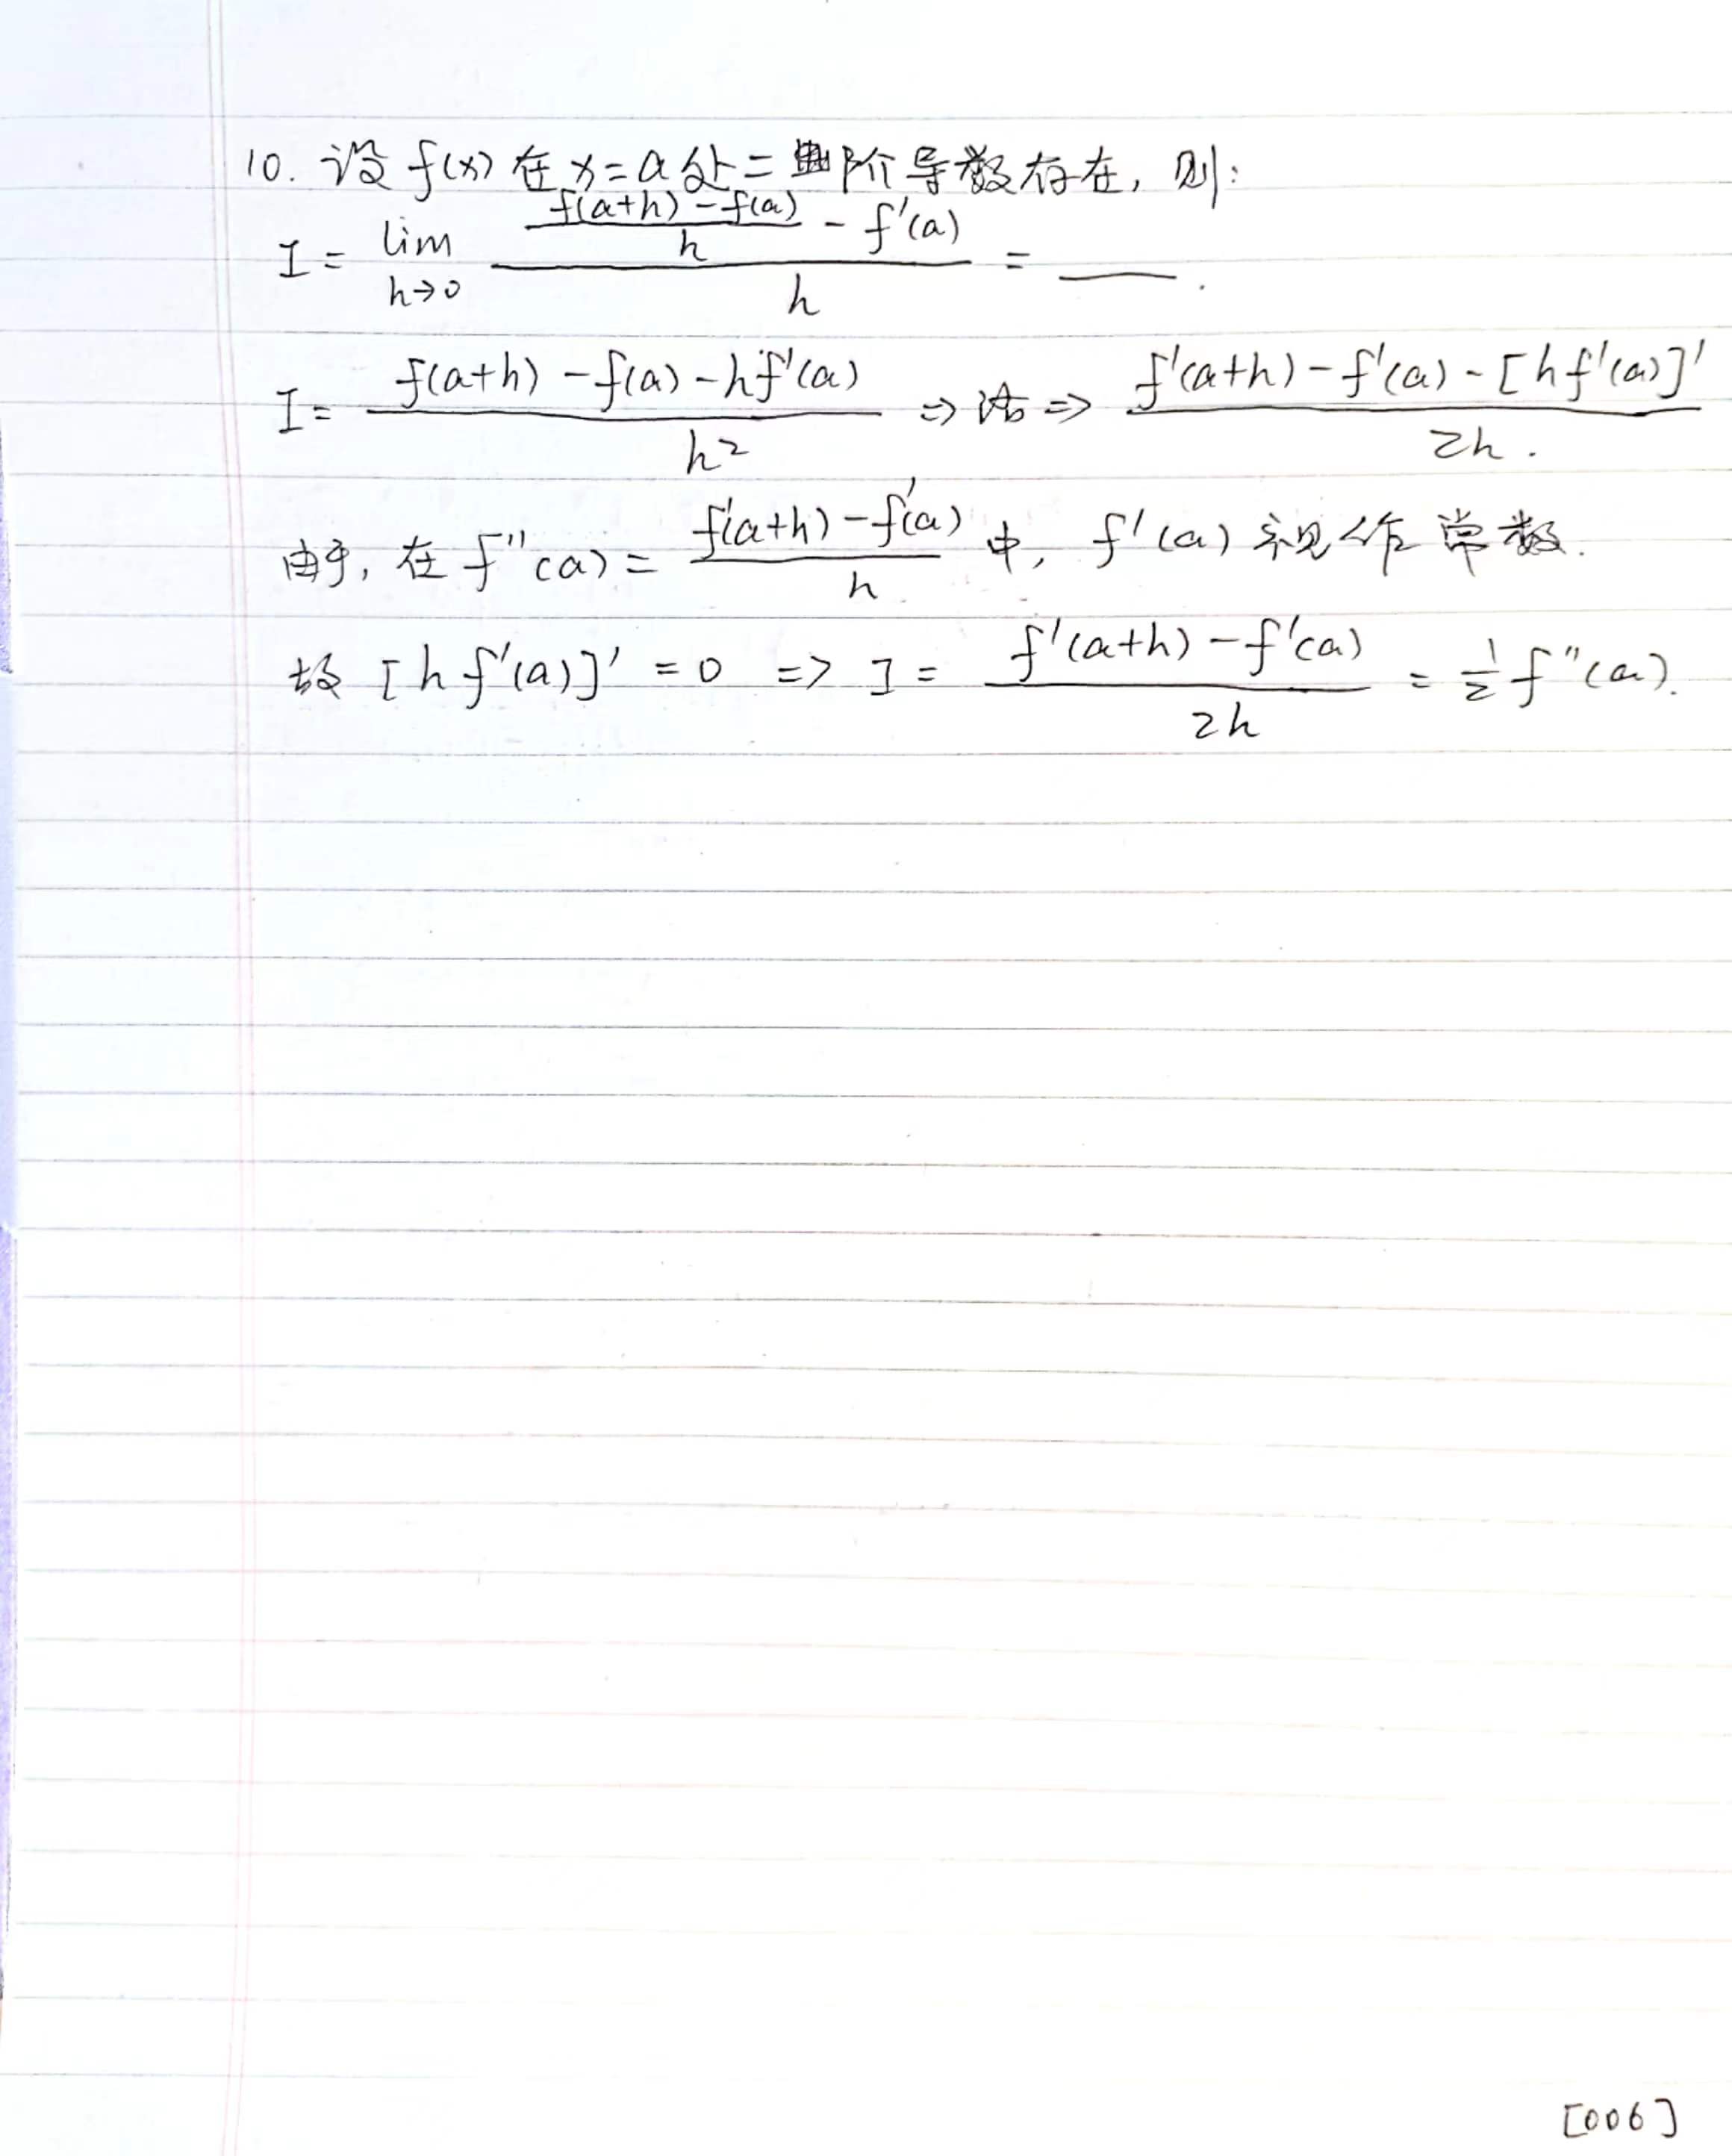 10. 设 f(x) 在 x=a 处二阶导数存在, 则:
I = lim_{h→0} \frac{\frac{f(a+h)-f(a)}{h} - f'(a)}{h} = ____.
I = \frac{f(a+h)-f(a)-hf'(a)}{h^2} ⇒ 洛 ⇒ \frac{f'(a+h)-f'(a)-[hf'(a)]'}{2h}.
由于, 在 f''(a) = \frac{f'(a+h)-f'(a)}{h} 中, f'(a) 视作常数.
故 [hf'(a)]' = 0 ⇒ I = \frac{f'(a+h)-f'(a)}{2h} = \frac{1}{2} f''(a).
[006]